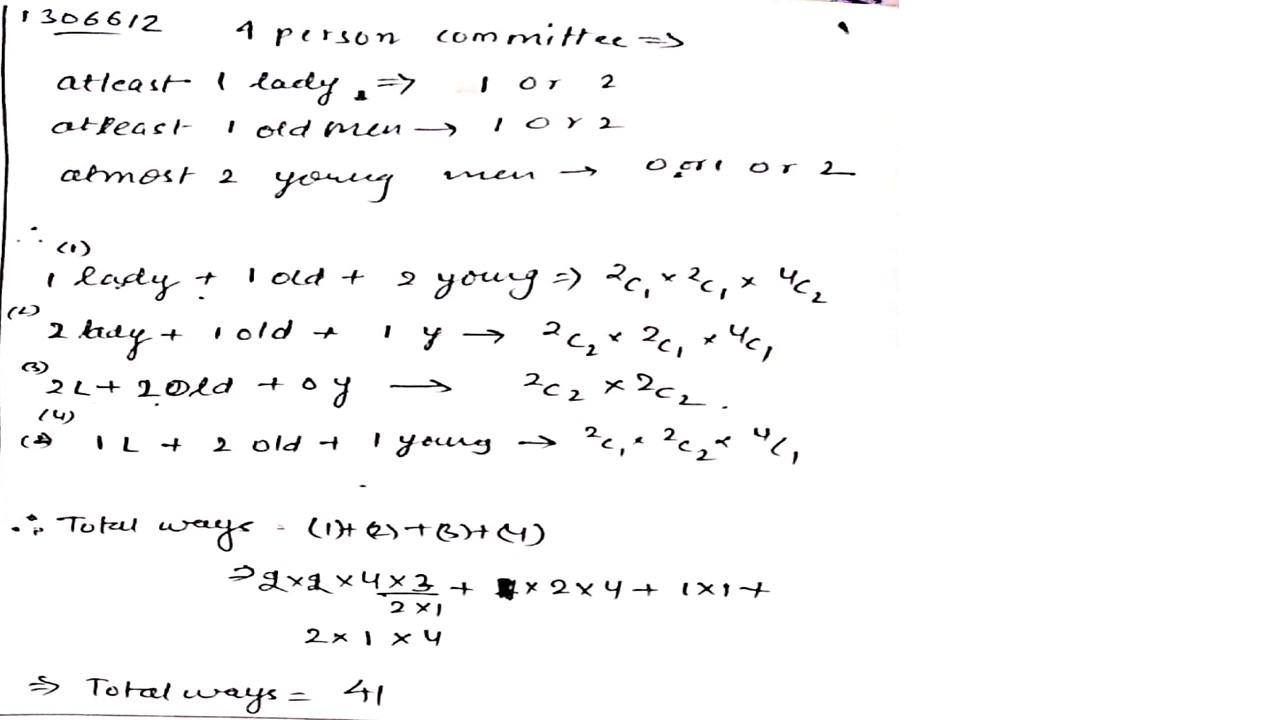 1306612 4 person committee =>
atleast 1 lady. => 1 or 2
atleast 1 old men → 1 or 2
atmost 2 young men → 0, or 1 or 2
∴ (1)
1 lady + 1 old + 2 young => ²C₁ × ²C₁ × ⁴C₂
(2)
2 lady + 1 old + 1 y → ²C₂ × ²C₁ × ⁴C₁
(3)
2L + 2 Old + 0 y → ²C₂ × ²C₂.
(4)
1 L + 2 old + 1 young → ²C₁ × ²C₂ × ⁴C₁
∴ Total ways = (1)+(2)+(3)+(4)
=> 2×2×4×3/2×1 + 1×2×4 + 1×1 +
2×1×4
=> Total ways = 41